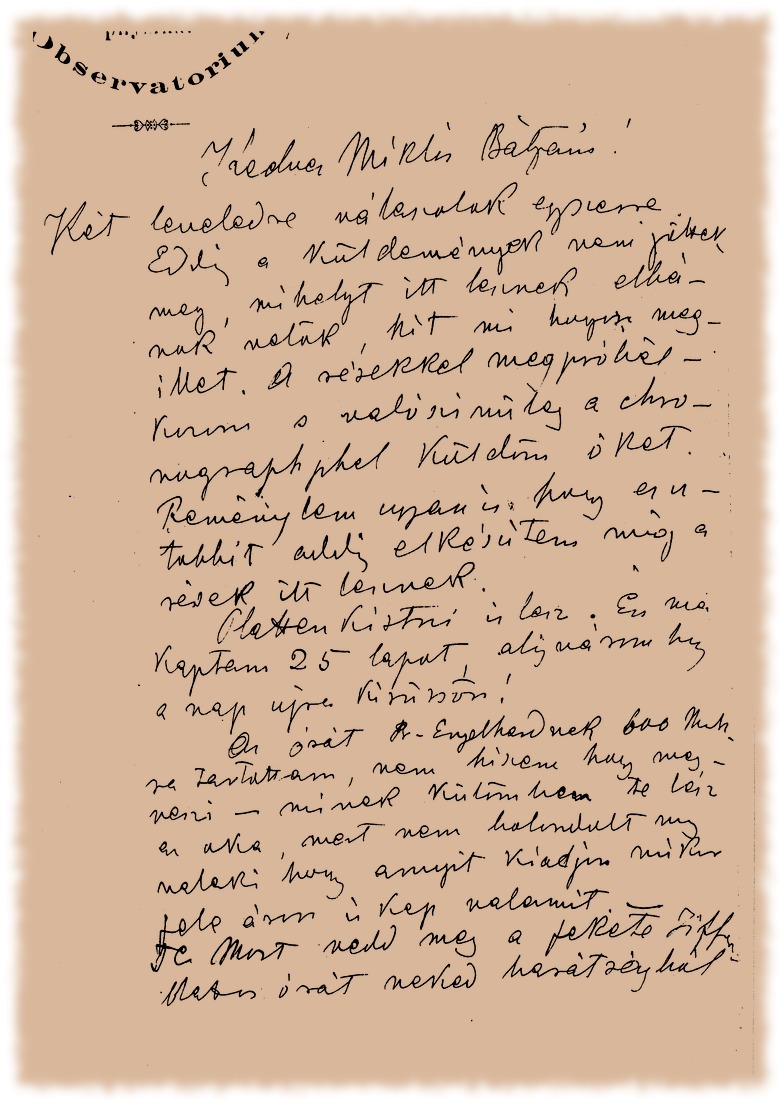 Observatorium
Kedves Miklós Bátyám!
Két leveledre válaszolok egyszerre
Eddig a küldemények nem jöttek
meg, mihelyt itt lesznek elhá-
nak velük, kit mi hogyan meg-
illet. A résekkel megpróbál-
kozom s valószinüleg a chro-
nographphel küldöm őket.
Reménylem ugyanis, hogy ez u-
tobbit addig elkészitem mig a
rések itt lesznek.
Platten Kistni is lesz. Én ma
kaptam 25 lapot, alig várom hogy
a nap ujra kisüssön!
Az órát Engelhardnek 600 Mrk
ra tartottam, nem hiszem hogy meg-
veszi — minek különben te lész
az oka, mert nem bolondult meg
valaki hogy annyit kiadjon mikor
fele áron is kap valamit. —
Most vedd meg a fekete Ziffer
blattos órát neked barátságból